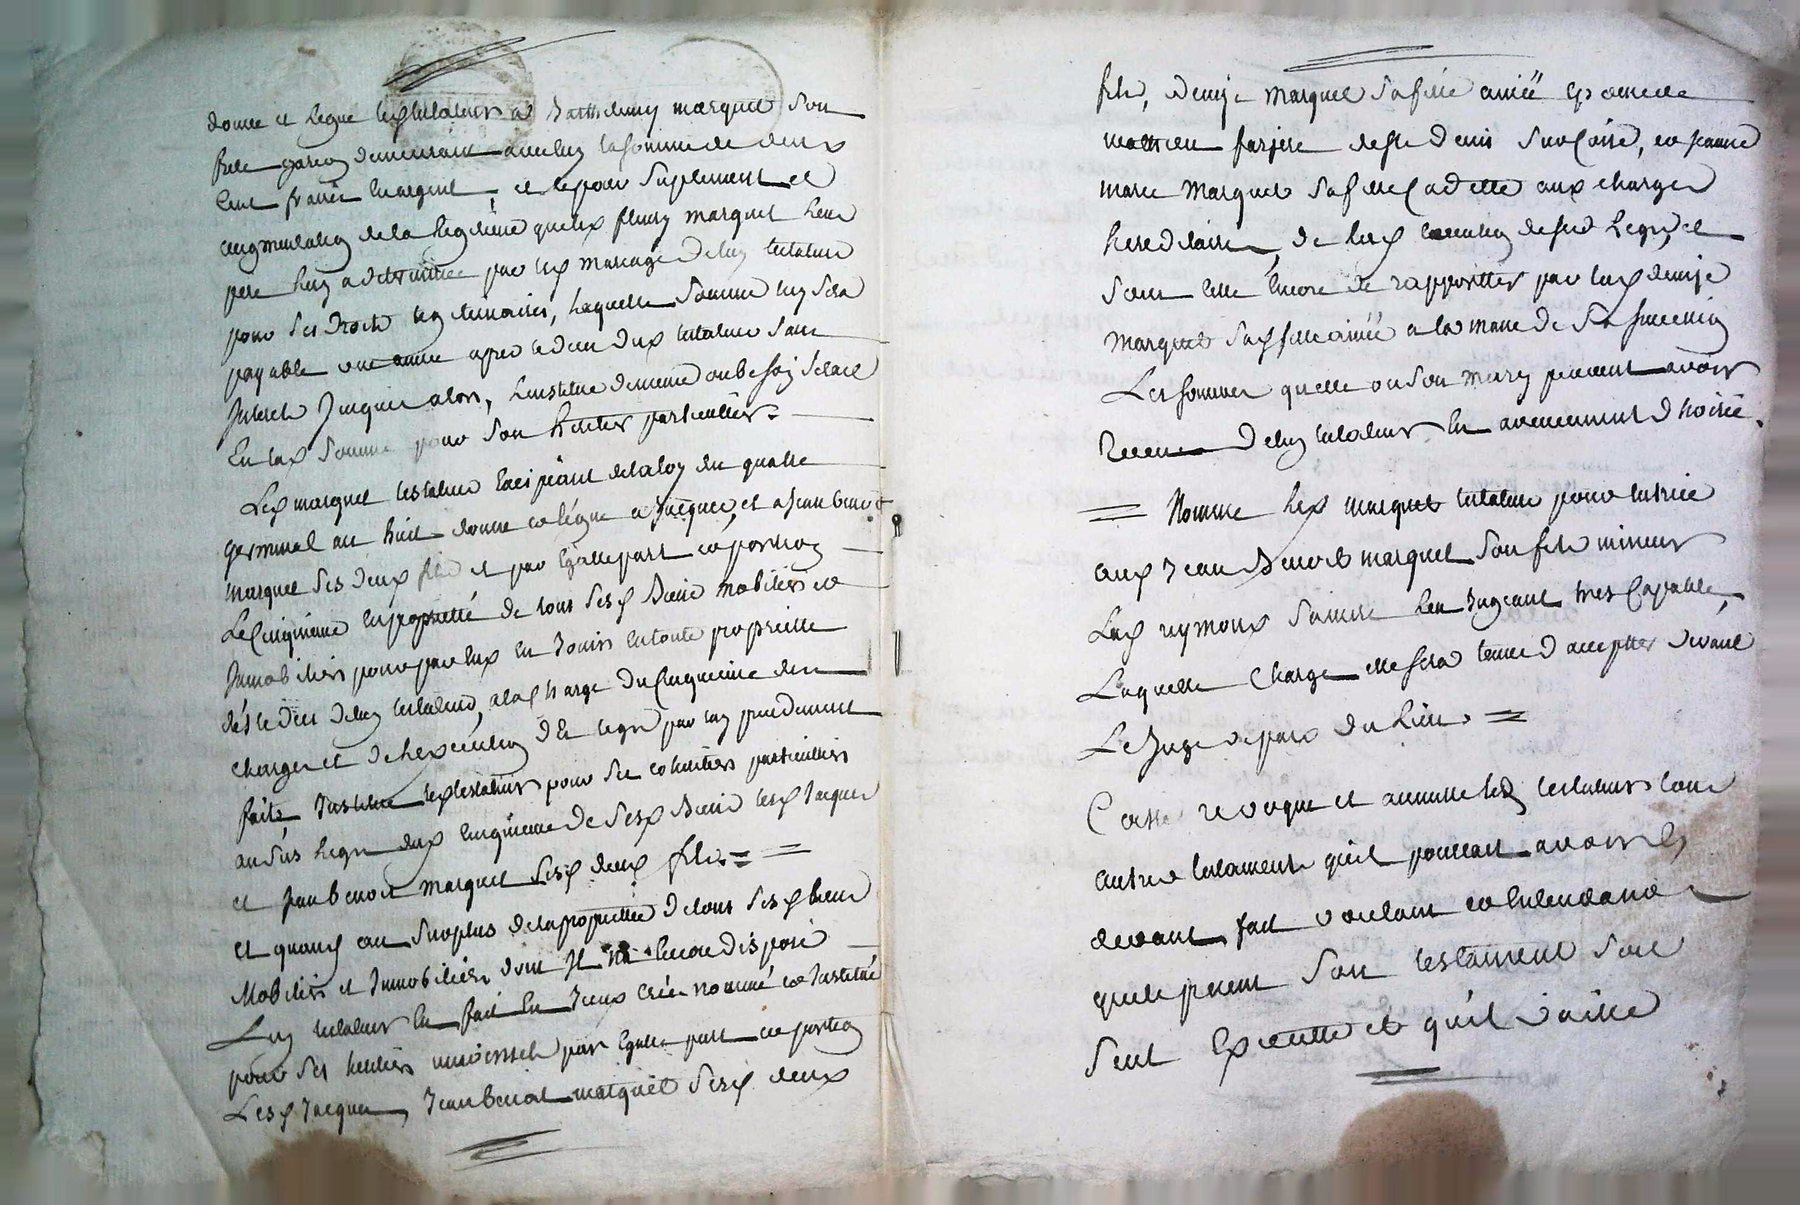 donne et legue led testateur a Barthelemy marquet son
frere garcon demeurant avec luy la somme de deux
cent francs en argent, et ce pour suplement et
augmentation de la legitime que led fleury marquet leur
pere luy a determinée par led mariage de luy testateur
pour ses droits legitimaires, laquelle somme luy sera
payable une année apres le deces dud testateur sans
Interet Jusques alors, l'institue dememe au besoin seroit
En lad somme pour son hÉritier particulier. =
Led marquet testateur En la loy du quatre
germinal an huit donne et légue a Jacques, et a Jean benoit
marquet ses deux fils et par Egalle part et portion
Le Cinquieme en proprietté de tous sesd Biens mobiliers et
Immobiliers pour par eux en Jouir en toute proprietté
dés le deces de luy testateur, a la charge du Cinquieme des
charges et de l'execution des legs par luy precedemment
faits Institue led testateur pour ses coheritiers particuliers
au susd legs dud cinquieme de sesd Biens lesd Jacques
et Jean benoit marquet sesd deux fils. = =
Et quand au surplus de la proprietté de tous sesd biens
Mobiliers et Immobiliers dont Il n'a encore disposé
Luy testateur En fait En Iceux crée nommé et Institue
pour ses heritiers universels par Egalle part et portion
Lesd Jacques, Jean benoit marquet sesd deux
fils, denise Marquet sa fille ainée Epouse de
mathieu farjere de St denis sur Coise, et Jeanne
marie Marquet sa fille Cadette aux charges
hereditaires, de lad Execution desusd legs, et
sous celle Encore de rapporter par lad denise
Marquet sad fille ainée a la masse de sa succession
Les sommes quelle ou son mary peuvent avoir
Recues de luy testateur En avancement d'hoirie.
= Nomme led marquet testateur pour tutrice
aud Jean Benoit marquet son fils mineur
Lad reymond sa femme l'en Jugeant tres Capable,
Laquelle Charge elle sera tenue d'accepter devant
Le Juge de paix du Lieu. =
Casse revoque et annulle led testateur tous
autres testaments qu'il pourrait avoir cy
devant fait voulant et entendant
que le present son testament soit
seul Executté et qu'il vaille